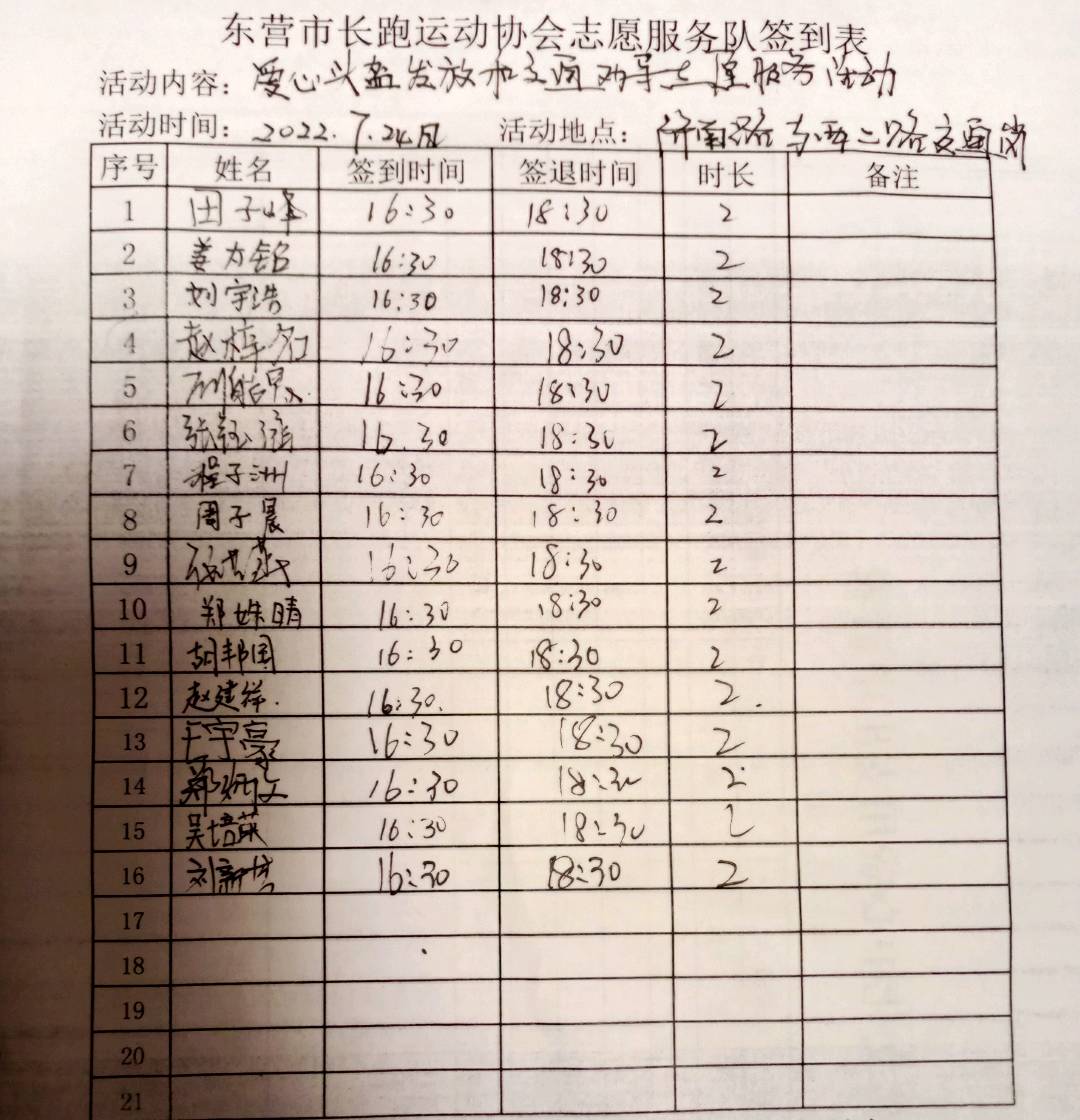 东营市长跑运动协会志愿服务队签到表
活动内容：爱心头盔发放和交通劝导志愿服务活动
活动时间：2022.7.24 活动地点：济南路与西二路交通岗
序号 姓名 签到时间 签退时间 时长 备注
1 田子峰 16:30 18:30 2
2 姜力铭 16:30 18:30 2
3 刘宇浩 16:30 18:30 2
4 赵 16:30 18:30 2
5 16:30 18:30 2
6 张钰涵 16.30 18:30 2
7 程子洲 16:30 18:30 2
8 周子晨 16:30 18:30 2
9 16:30 18:30 2
10 郑姝晴 16:30 18:30 2
11 胡邦国 16:30 18:30 2
12 赵建祥. 16:30. 18:30 2.
13 王宇豪 16:30 18:30 2
14 郑炳文 16:30 18:30 2
15 吴培英 16:30 18:30 2
16 刘新 16:30 18:30 2
17
18
19
20
21